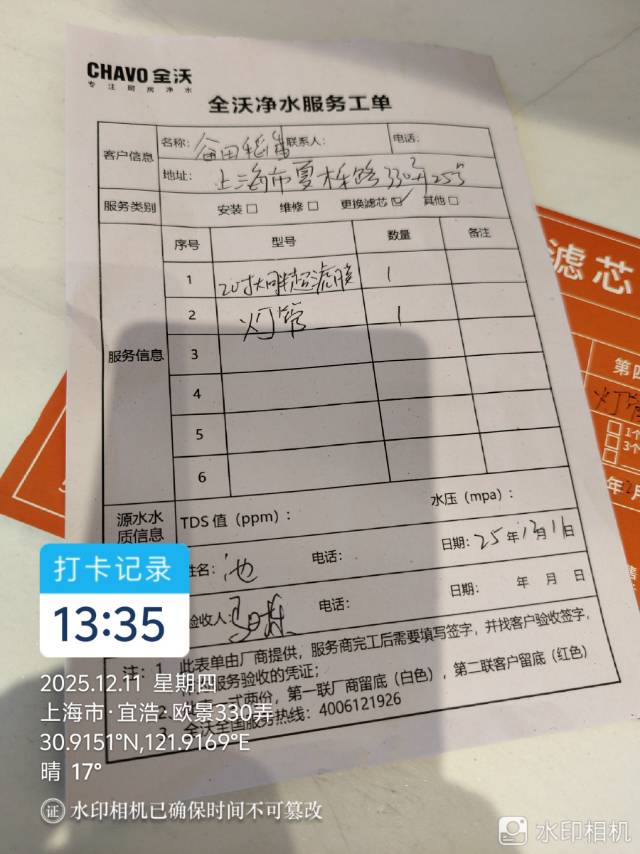 CHAVO 全沃
专注厨房净水
全沃净水服务工单
客户信息 名称: 谷田稻香 联系人: 电话:
地址: 上海市夏栎路330弄25号
服务类别 安装□ 维修□ 更换滤芯☑ 其他□
服务信息 序号 型号 数量 备注
1 20寸大同特超滤膜 1
2 灯管 1
3
4
5
6
源水水质信息 TDS 值（ppm）: 水压（mpa）:
姓名: 池 电话: 日期: 25年12月11日
验收人: 电话: 日期: 年 月 日
注: 1 此表单由厂商提供，服务商完工后需要填写签字，并找客户验收签字，
服务验收的凭证；
2 一式两份，第一联厂商留底（白色），第二联客户留底（红色）
3 全沃全国服务热线: 4006121926
滤芯
第四
灯管
□1个
□3个
年2月
打卡记录
13:35
2025.12.11 星期四
上海市·宜浩·欧景330弄
30.9151°N,121.9169°E
晴 17°
证 水印相机已确保时间不可篡改
水印相机